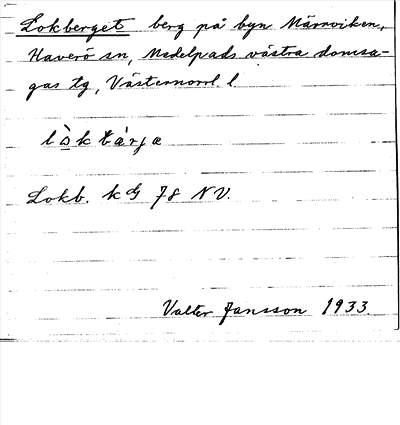 Lokberget berg på byn Märrviken,
Haverö sn, Medelpads västra domsa-
gas tg, Västernorrl. l.
Lokb. k G 78 NV.
Valter Jansson 1933.